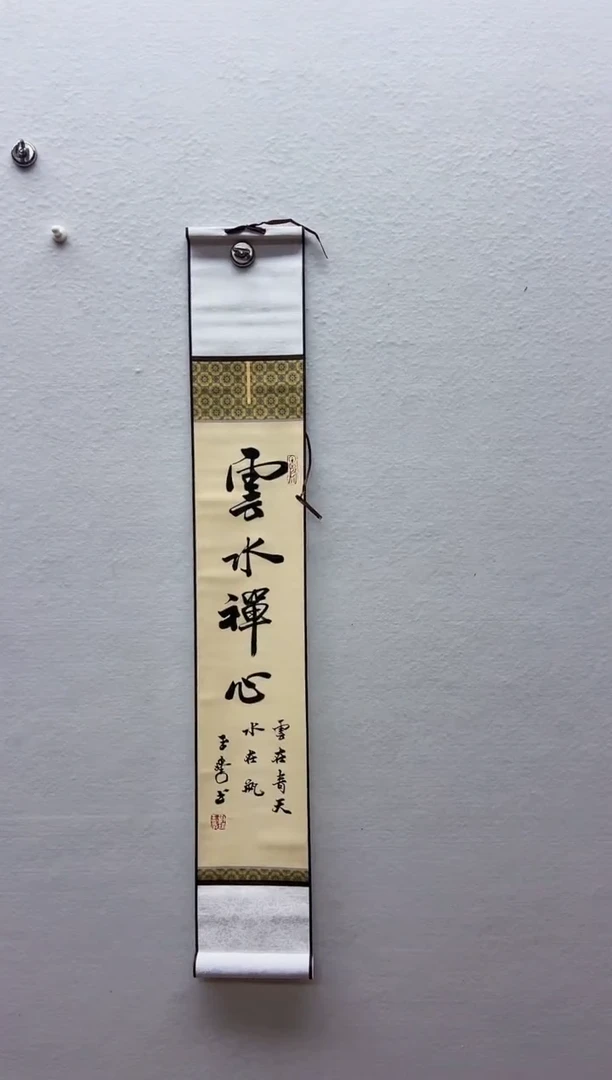 雲水禪心
雲在青天
水在瓶